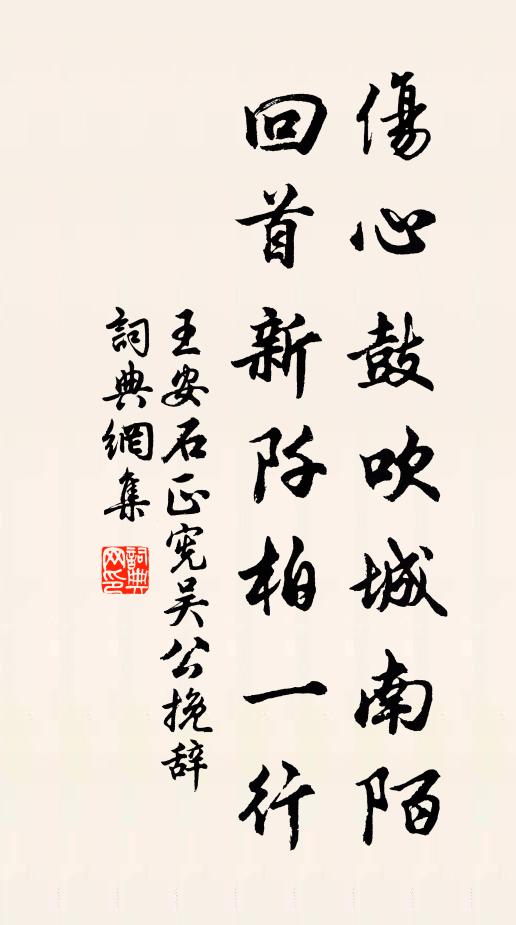 傷心鼓吹城南陌
回首新阡柏一行
王安石正宪吴公挽辞
詞典網集
詞典网印